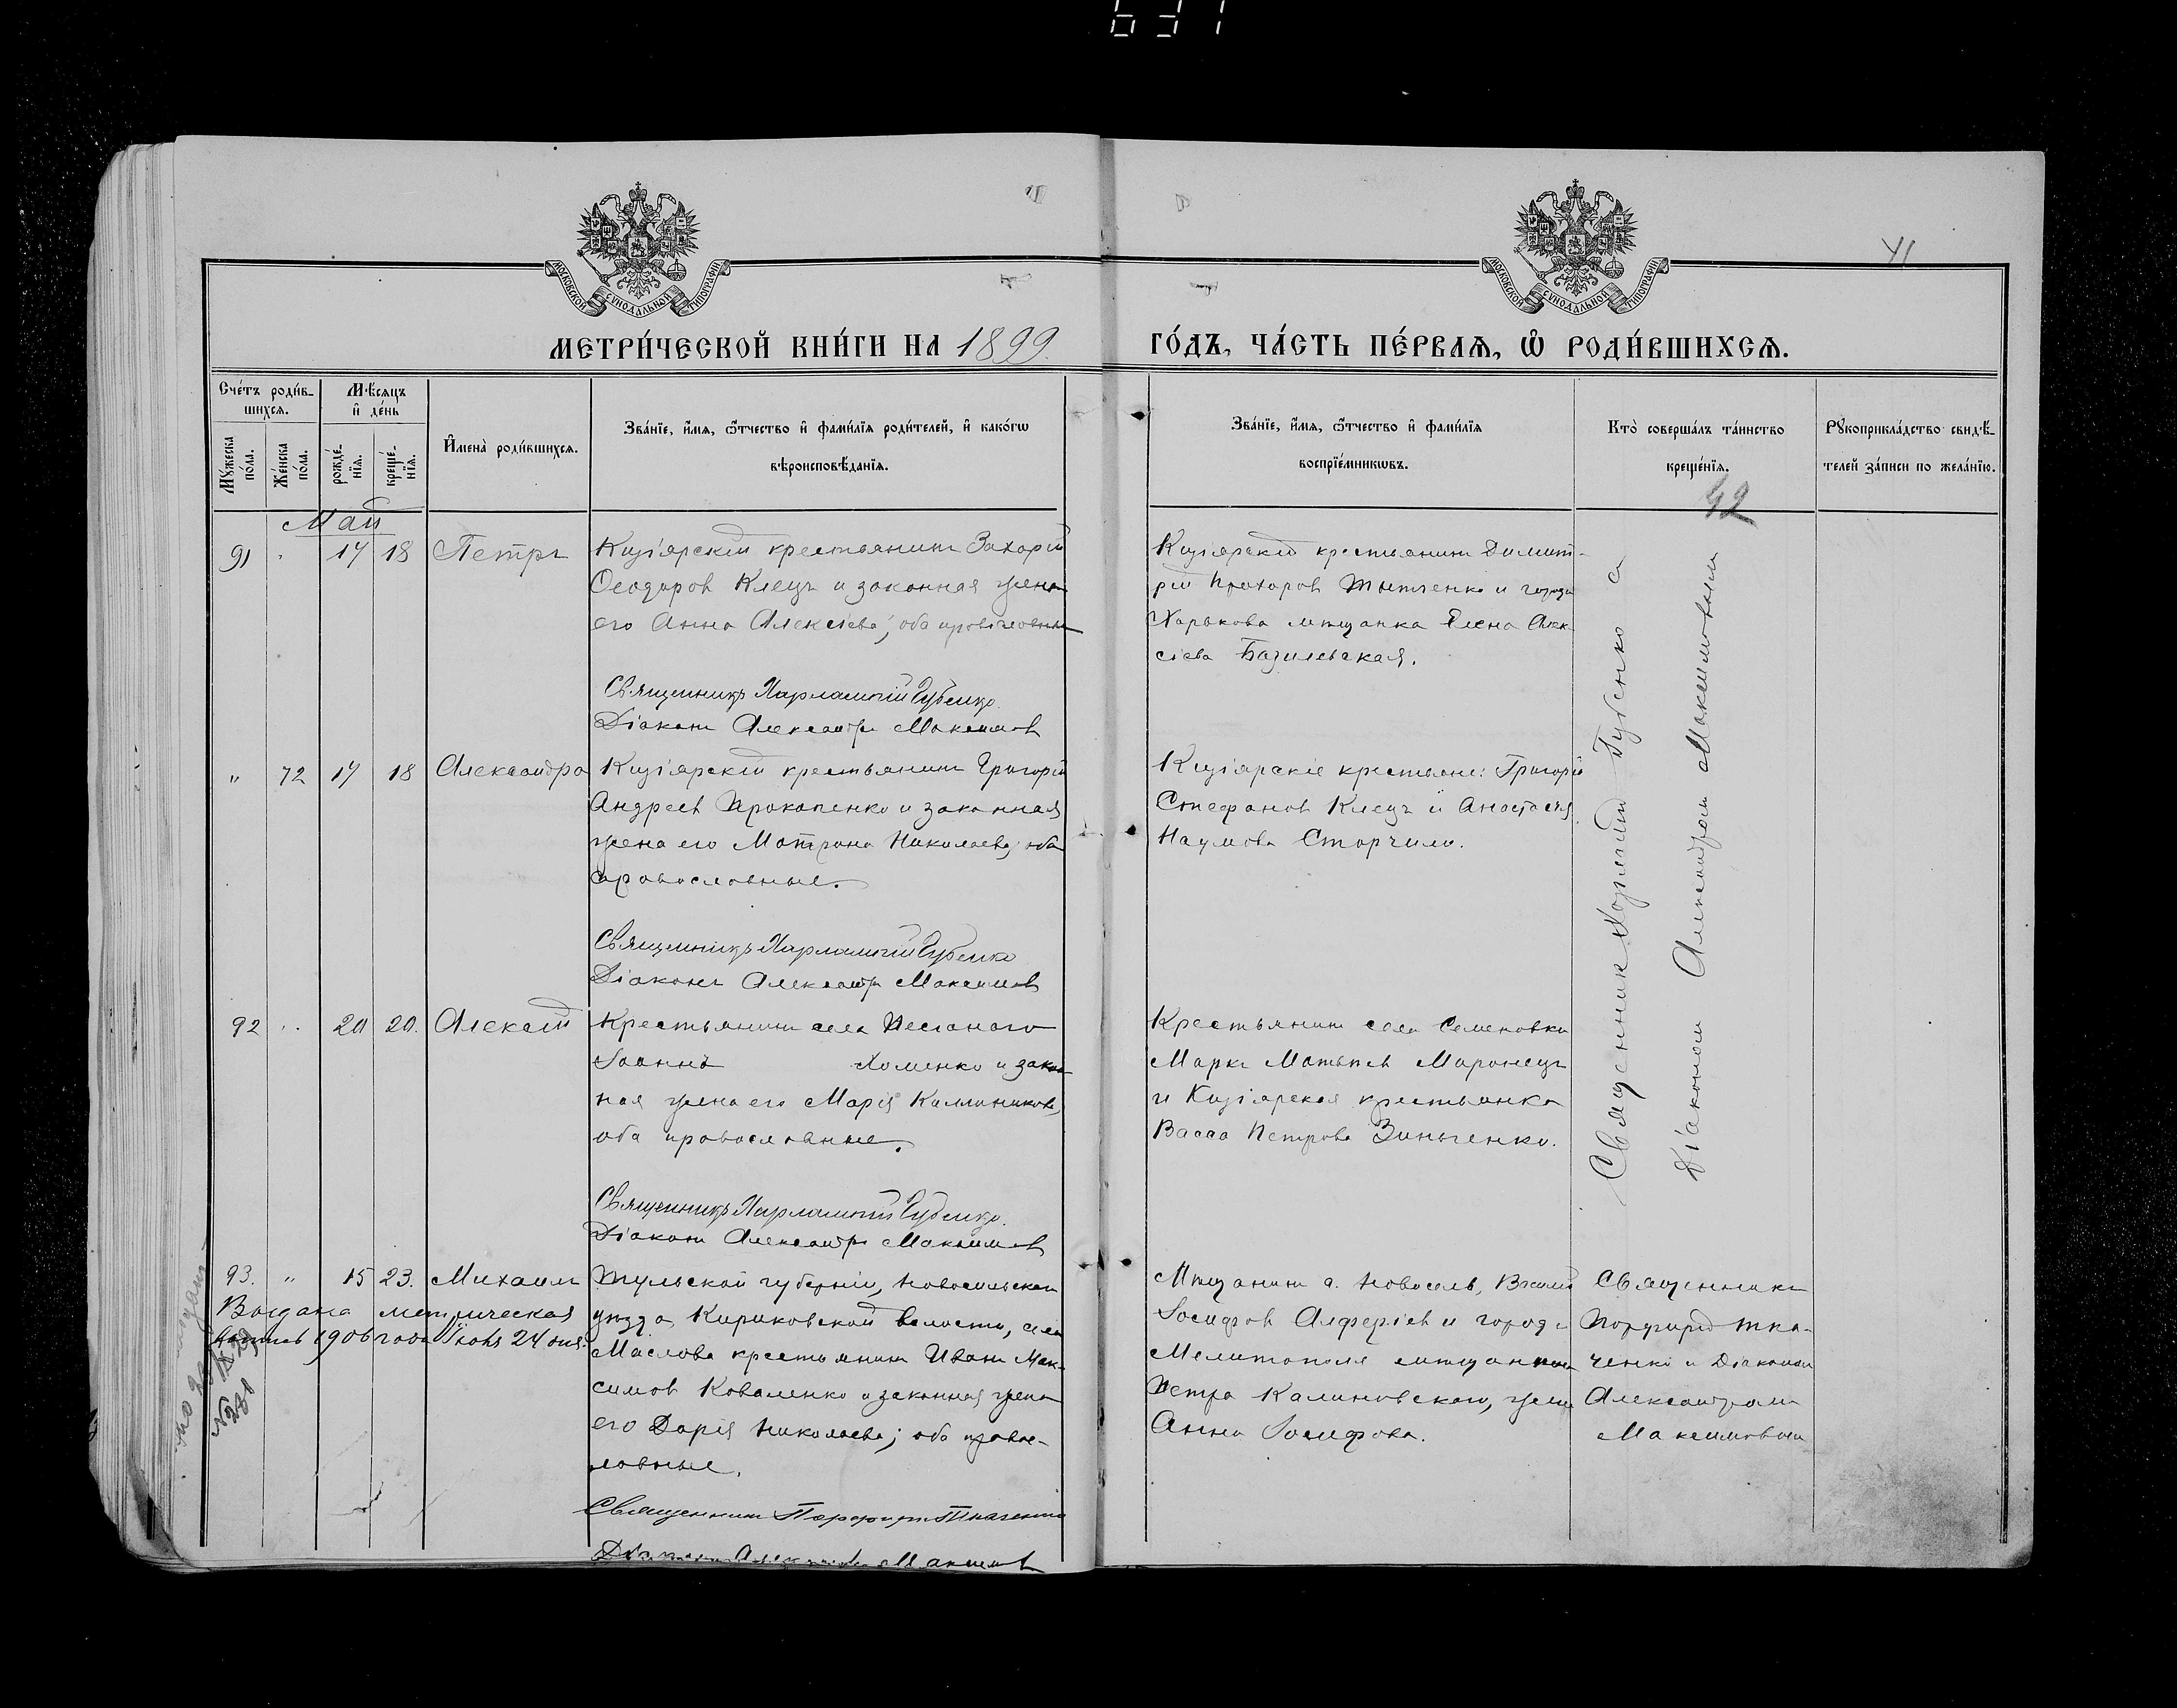 631
МОСКОВСКОЙ СѴНОДАЛЬНОЙ ТИПОГРАФІИ
МОСКОВСКОЙ СѴНОДАЛЬНОЙ ТИПОГРАФІИ
41
МЕТРИ́ЧЕСКОЙ КНИ́ГИ НА 1899 ГО́ДЪ, ЧА́СТЬ ПЕ́РВАѦ, Ѡ РОДИ́ВШИХСѦ.
Сче́тъ роди́в-
шихсѧ.
Мꙋ́жеска по́ла.
Же́нска по́ла.
Мѣ́сѧцъ
и де́нь
рожде́-
нїѧ.
креще́-
нїѧ.
Имена̀ роди́вшихсѧ.
Зва́нїе, и́мѧ, ѻ҆́тчество и фами́лїѧ роди́телей, и како́гѡ
вѣроисповѣ́данїѧ.
Зва́нїе, и́мѧ, ѻ҆́тчество и фами́лїѧ
воспрїе́мникѡвъ.
Кто̀ соверша́лъ та́инство
креще́нїѧ.
Рꙋкоприкла́дство свидѣ́-
телей за́писи по жела́нїю.
42
Май
91 17 18 Петръ
Кизіярскій крестьянинъ Захарій
Ѳеодоровъ Клецъ и законная жена
его Анна Алексіева, оба православные
Священникъ Харлампій Губенко.
Діаконъ Александръ Максимовъ
Кизіярскій крестьянинъ Димит-
рій Прохоровъ и города
Харькова мѣщанка Елена Алек
сіева Базилевская.
Священникъ Харлампій Губенко с
Діакономъ Александромъ Максимовымъ
" 72 17 18 Александра
Кизіярскій крестьянинъ Григорій
Андреевъ Прокопенко и законная
жена его Матрона Николаева, оба
православные.
Священникъ Харлампій Губенко
Діаконъ Александръ Максимовъ
Кизіярскіе крестьяне: Григорій
Стефановъ Клецъ и Анастасія
Наумова Сторчило.
92 " 20 20. Алексій
Крестьянинъ села Песчанаго
Іоаннъ Хоменко и закон
ная жена его Марія Каллиникова,
оба православные.
Священникъ Харлампій Губенко.
Діаконъ Александръ Максимовъ
Крестьянинъ села Семеновки
Маркъ Матвѣевъ Миронецъ
и Кизіярская крестьянка
Васса Петрова Зинченко.
93. " 15 23. Михаилъ
Выдана метрическая
1906 года Іюня 24 дня.
Тульской губерніи, Новосильскаго
уѣзда, Кириковской волости, села
Маслова крестьянинъ Иванъ Мак-
симовъ Коваленко и законная жена
его Дарія Николаева; оба правос-
лавные.
Священникъ Порфирій Ткаченко
Діаконъ Александръ Максимовъ
Мѣщанинъ г. Новосиль, Василій
Іосифовъ Алферіевъ и города
Мелитополя мѣщанина
Петра Калиновскаго, жена
Анна Іосифова.
Священникъ
Порфирій Тка-
ченко и Діакономъ
Александромъ
Максимовымъ